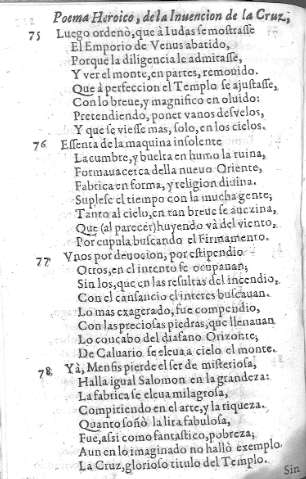 Poema Heroico, de la Inuencion de la Cruz,
75 Luego ordenò, que à Iudas se mostrasse
El Emporio de Venus abatido,
Porque la diligencia le admirasse,
Y ver el monte, en partes, remouido.
Que à perfeccion el Templo se ajustasse,
Con lo breue, y magnifico en oluido:
Pretendiendo, poner vanos desvelos,
Y que se viesse mas, solo, en los cielos.
76 Essenta de la maquina insolente
La cumbre, y buelta en humo la ruina,
Formaua cerca della nueuo Oriente,
Fabrica en forma, y religion diuina.
Suplese el tiempo con la mucha gente;
Tanto al cielo, en tan breue se auezina,
Que (al parecer) huyendo và del viento,
Por cupula buscando el Firmamento.
77 Vnos por deuocion, por estipendio
Otros, en el intento se ocupauan;
Sin los, que en las resultas del incendio,
Con el cansancio el interes buscauan.
Lo mas exagerado, fue compendio,
Con las preciosas piedras, que llenauan
Lo concabo del diafano Orizonte,
De Caluario se eleua a cielo el monte.
78 Yà, Menfis pierde el ser de misteriosa,
Halla igual Salomon en la grandeza:
La fabrica se eleua milagrosa,
Compitiendo en el arte, y la riqueza.
Quanto soñò la lira fabulosa,
Fue, assi como fantastico, pobreza;
Aun en lo imaginado no hallò exemplo.
La Cruz, glorioso titulo del Templo.
Sin